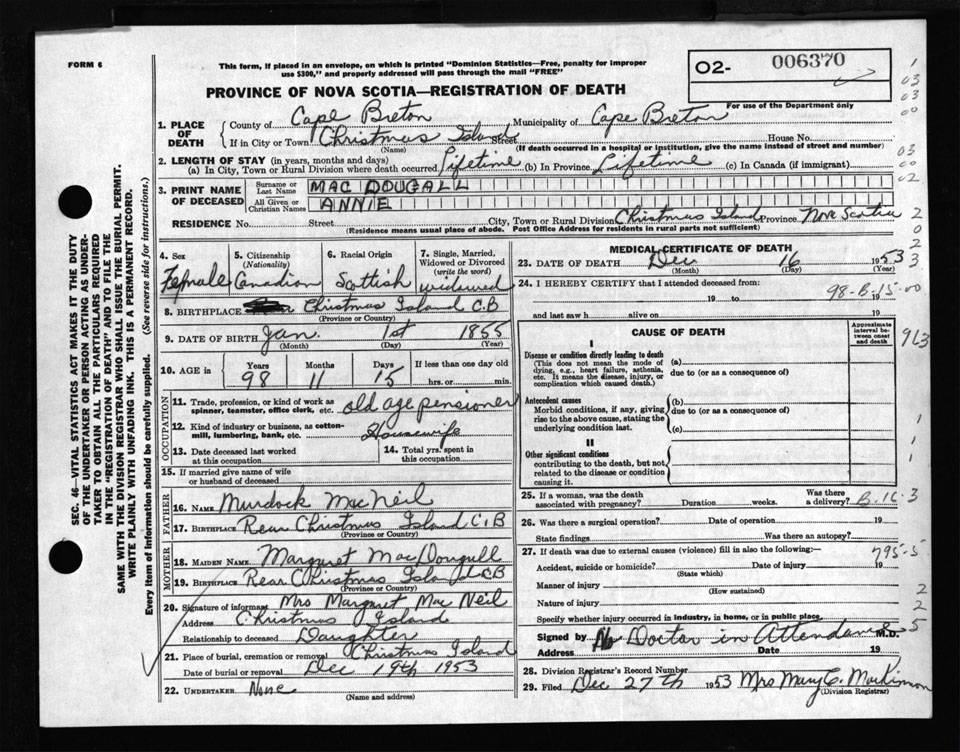 FORM 6
This form, if placed in an envelope, on which is printed "Dominion Statistics—Free, penalty for improper
use $300," and properly addressed will pass through the mail "FREE"
O2- 006370
For use of the Department only
PROVINCE OF NOVA SCOTIA—REGISTRATION OF DEATH
SEC. 46—VITAL STATISTICS ACT MAKES IT THE DUTY
OF THE UNDERTAKER OR PERSON ACTING AS UNDER-
TAKER TO OBTAIN ALL THE PARTICULARS REQUIRED
IN THE "REGISTRATION OF DEATH" AND TO FILE THE
SAME WITH THE DIVISION REGISTRAR WHO SHALL ISSUE THE BURIAL PERMIT.
WRITE PLAINLY WITH UNFADING INK. THIS IS A PERMANENT RECORD.
Every item of information should be carefully supplied. (See reverse side for instructions.)
1. PLACE OF DEATH
County of Cape Breton Municipality of Cape Breton
If in City or Town Christmas Island Street House No.
(Name) (If death occurred in a hospital or institution, give the name instead of street and number)
2. LENGTH OF STAY (in years, months and days)
(a) In City, Town or Rural Division where death occurred Lifetime (b) In Province Lifetime (c) In Canada (if immigrant)
3. PRINT NAME OF DECEASED
Surname or Last Name MAC DOUGALL
All Given or Christian Names ANNIE
RESIDENCE No. Street City, Town or Rural Division Christmas Island Province Nova Scotia
(Residence means usual place of abode. Post Office Address for residents in rural parts not sufficient)
4. Sex Female
5. Citizenship (Nationality) Canadian
6. Racial Origin Scottish
7. Single, Married, Widowed or Divorced (write the word) widowed
8. BIRTHPLACE Christmas Island C.B
(Province or Country)
9. DATE OF BIRTH Jan. 1st 1855
(Month) (Day) (Year)
10. AGE in Years 98 Months 11 Days 15 If less than one day old hrs. or min.
OCCUPATION
11. Trade, profession, or kind of work as spinner, teamster, office clerk, etc. old age pensioner
12. Kind of industry or business, as cotton-mill, lumbering, bank, etc. Housewife
13. Date deceased last worked at this occupation
14. Total yrs. spent in this occupation
15. If married give name of wife or husband of deceased
FATHER
16. NAME Murdock MacNeil
17. BIRTHPLACE Rear Christmas Island C.B
(Province or Country)
MOTHER
18. MAIDEN NAME Margaret MacDougull
19. BIRTHPLACE Rear Christmas Island CB
(Province or Country)
20. Signature of informant Mrs Margaret MacNeil
Address Christmas Island
Relationship to deceased Daughter
21. Place of burial, cremation or removal Christmas Island
Date of burial or removal Dec 19th 1953
22. UNDERTAKER None
(Name and address)
MEDICAL CERTIFICATE OF DEATH
23. DATE OF DEATH Dec 16 1953
(Month) (Day) (Year)
24. I HEREBY CERTIFY that I attended deceased from:
19 to 19
98-B-15-00
and last saw h alive on 19
CAUSE OF DEATH
Approximate interval between onset and death
I
Disease or condition directly leading to death
(This does not mean the mode of dying, e.g., heart failure, asthenia, etc. It means the disease, injury, or complication which caused death.)
(a)
due to (or as a consequence of)
Antecedent causes
Morbid conditions, if any, giving rise to the above cause, stating the underlying condition last.
(b)
due to (or as a consequence of)
(c)
II
Other significant conditions contributing to the death, but not related to the disease or condition causing it.
25. If a woman, was the death associated with pregnancy? Duration weeks. Was there a delivery? B-16-3
26. Was there a surgical operation? Date of operation 19
State findings Was there an autopsy?
27. If death was due to external causes (violence) fill in also the following:— 795-5
Accident, suicide or homicide? Date of injury 19
(State which)
Manner of injury
(How sustained)
Nature of injury
Specify whether injury occurred in industry, in home, or in public place.
Signed by No Doctor in Attendance M.D.
Address Date 19
28. Division Registrar's Record Number
29. Filed Dec 27th 1953 Mrs Mary C. MacKinnon
(Division Registrar)
1
03
03
00
03
00
02
2
0
2
3
963
1
1
1
2
2
5